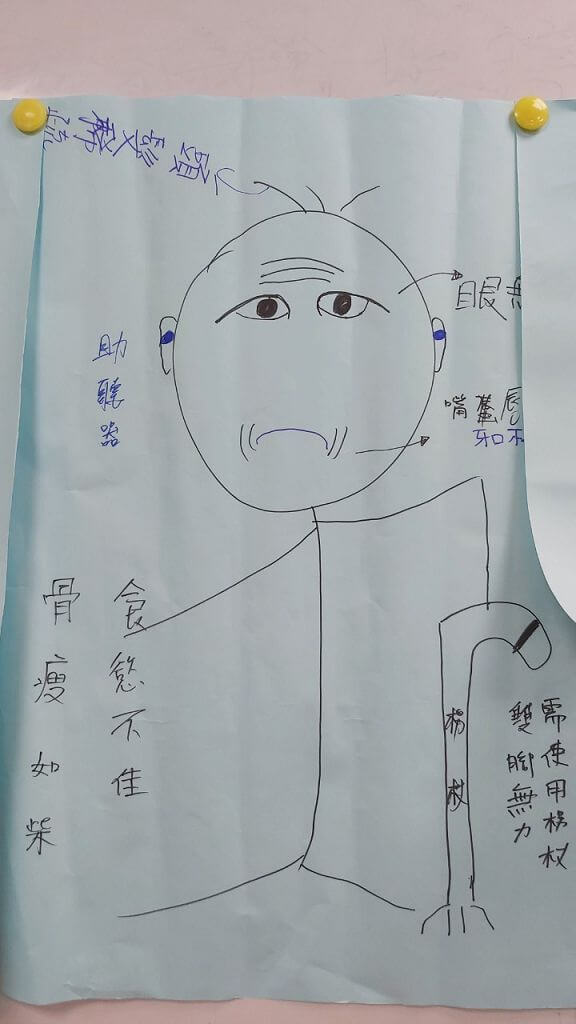 頭髮變稀疏
眼
嘴
唇
牙
助聽器
食慾不佳
骨瘦如柴
柺杖
需使用柺杖
雙腳無力